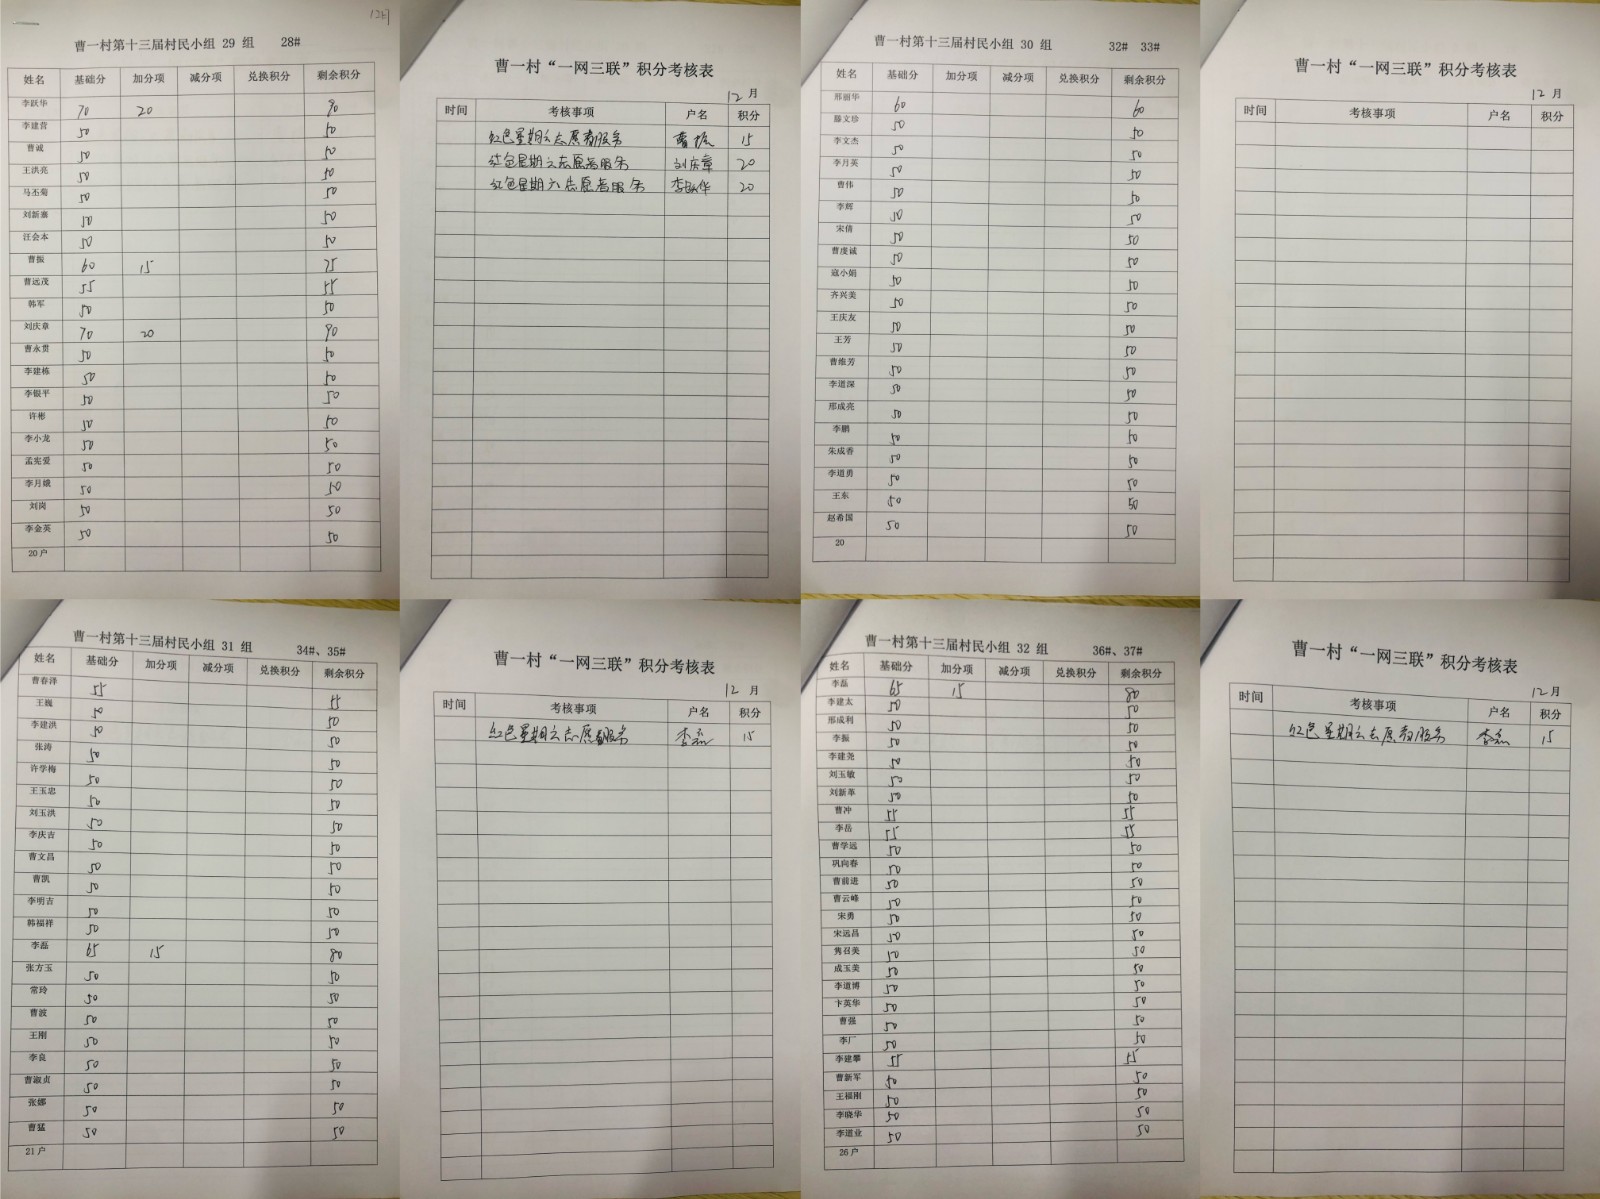 12月
曹一村第十三届村民小组 29 组 28#
姓名 基础分 加分项 减分项 兑换积分 剩余积分
李跃华 70 20 90
李建营 50 50
曹诚 50 50
王洪亮 50 50
马丕菊 50 50
刘新寨 50 50
汪会本 50 50
曹振 60 15 75
曹远茂 55 55
韩军 50 50
刘庆章 70 20 90
曹永贯 50 50
李建栋 50 50
李银平 50 50
许彬 50 50
李小龙 50 50
孟宪爱 50 50
李月娥 50 50
刘岗 50 50
李金英 50 50
20户
曹一村“一网三联”积分考核表
12月
时间 考核事项 户名 积分
红色星期六志愿者服务 曹振 15
红色星期六志愿者服务 刘庆章 20
红色星期六志愿者服务 李跃华 20
曹一村第十三届村民小组 30 组 32# 33#
姓名 基础分 加分项 减分项 兑换积分 剩余积分
邢丽华 60 60
滕文珍 50 50
李文杰 50 50
李月英 50 50
曹伟 50 50
李辉 50 50
宋倩 50 50
曹虔诚 50 50
寇小娟 50 50
齐兴美 50 50
王庆友 50 50
王芳 50 50
曹维芳 50 50
李道深 50 50
邢成亮 50 50
李鹏 50 50
朱成香 50 50
李道勇 50 50
王东 50 50
赵希国 50 50
20
曹一村“一网三联”积分考核表
12月
时间 考核事项 户名 积分
曹一村第十三届村民小组 31 组 34#、35#
姓名 基础分 加分项 减分项 兑换积分 剩余积分
曹春泽 55 55
王巍 50 50
李建洪 50 50
张涛 50 50
许学梅 50 50
王玉忠 50 50
刘玉洪 50 50
李庆吉 50 50
曹文昌 50 50
曹凯 50 50
李明吉 50 50
韩福祥 50 50
李磊 65 15 80
张方玉 50 50
常玲 50 50
曹波 50 50
王刚 50 50
李良 50 50
曹淑贞 50 50
张娜 50 50
曹猛 50 50
21户
曹一村“一网三联”积分考核表
12月
时间 考核事项 户名 积分
红色星期六志愿者服务 李磊 15
曹一村第十三届村民小组 32 组 36#、37#
姓名 基础分 加分项 减分项 兑换积分 剩余积分
李磊 65 15 80
李建太 50 50
邢成利 50 50
李振 50 50
李建尧 50 50
刘玉敏 50 50
刘新革 50 50
曹冲 55 55
李岳 55 55
曹学远 50 50
巩向春 50 50
曹前进 50 50
曹云峰 50 50
宋勇 50 50
宋远昌 50 50
隽召美 50 50
成玉美 50 50
李道博 50 50
卞英华 50 50
曹强 50 50
李厂 50 50
李建攀 55 55
曹新军 50 50
王福刚 50 50
李晓华 50 50
李道业 50 50
26户
曹一村“一网三联”积分考核表
12月
时间 考核事项 户名 积分
红色星期六志愿者服务 李磊 15